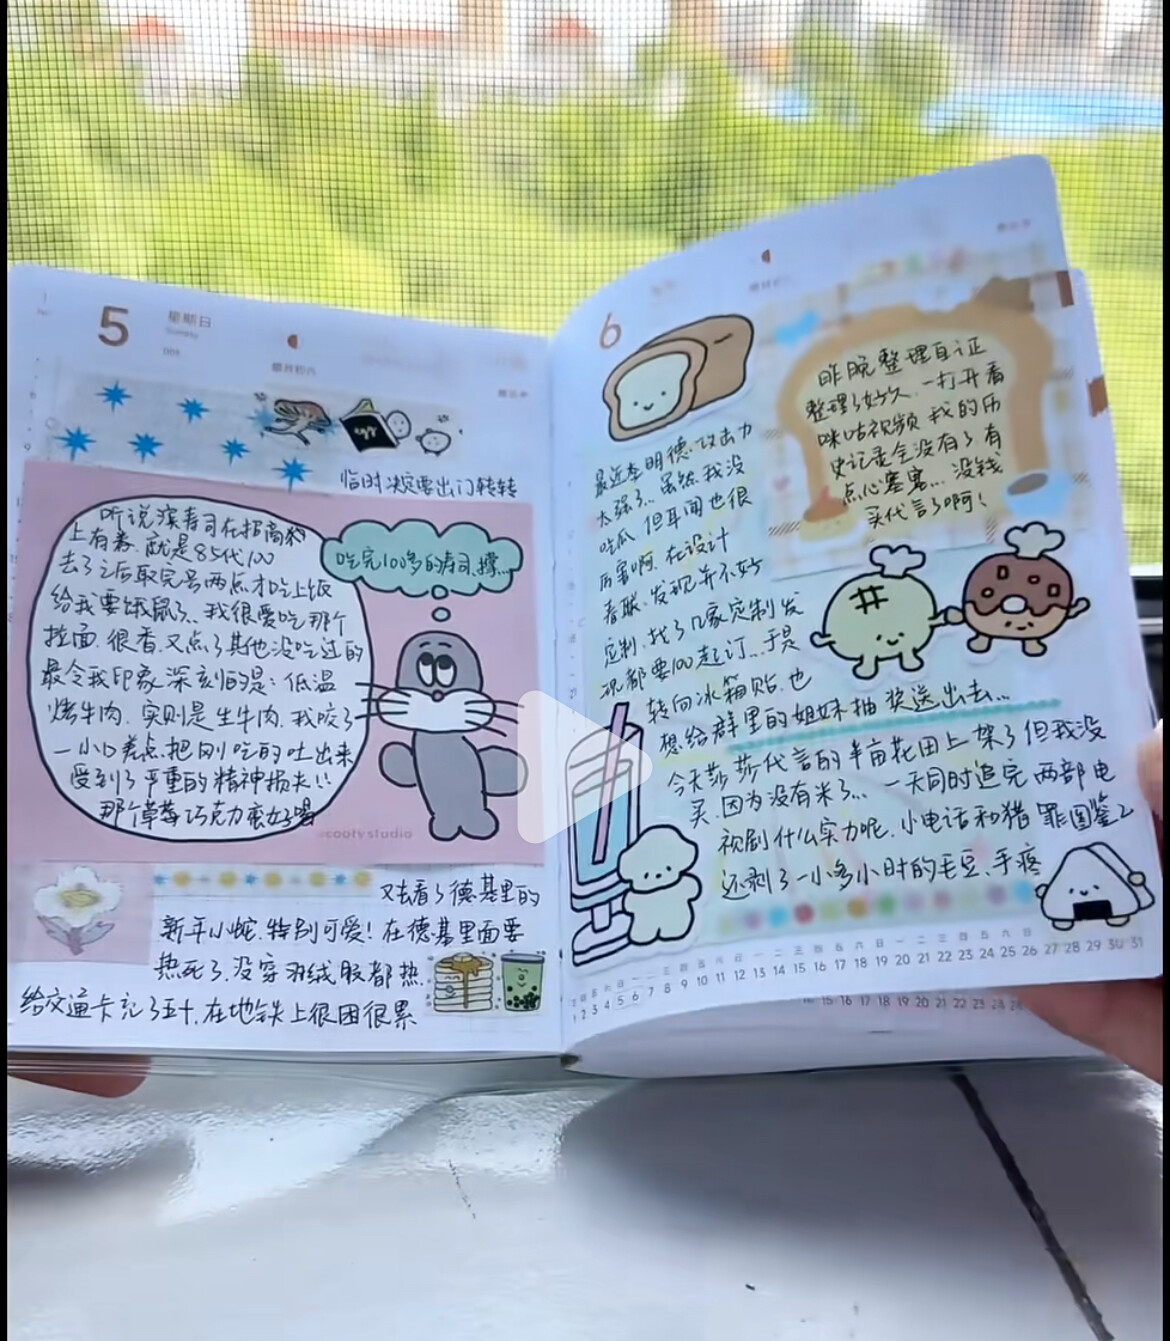 5
星期日
Sunday
005
腊月初六
临时决定要出门转转
听说滨寿司在招商狗
上有券.就是85代100
去了之后取完号两点才吃上饭
给我要饿鼠了、我很爱吃那个
拉面.很香.又点了其他没吃过的
最令我印象深刻的是:低温
烤牛肉.实则是生牛肉.我咬了
一小口差点把刚吃的吐出来
受到了严重的精神损失!!
那个草莓巧克力蛮好喝
吃完100多的寿司.撑...
@cooty studio
又去看了德基里的
新年小蛇.特别可爱!在德基里面要
热死了.没穿羽绒服都热.
给交通卡充了五十.在地铁上很困很累
6
昨晚整理自证
整理了好久.一打开看
咪咕视频我的历
史记录全没有了有
点心塞塞...没钱
买代言了啊!
最近李明德.攻击力
太强了...虽然我没
吃瓜.但耳闻也很
厉害啊.在设计
春联.发现并不好
定制.找了几家定制发
现都要100起订...于是
转向冰箱贴.也
想给群里的姐妹抽奖送出去...
今天莎莎代言的半亩花田上架了但我没
买.因为没有米了... 一天同时追完两部电
视剧什么实力呢.小电话和猎罪图鉴2
还剩了一小多小时的毛豆.手疼
三四五六日一二三四五六日一二三四五六日一二三四五六日
1 2 3 4 5 6 7 8 9 10 11 12 13 14 15 16 17 18 19 20 21 22 23 24 25 26 27 28 29 30 31
15 16 17 18 19 20 21 22 23 24 25 26